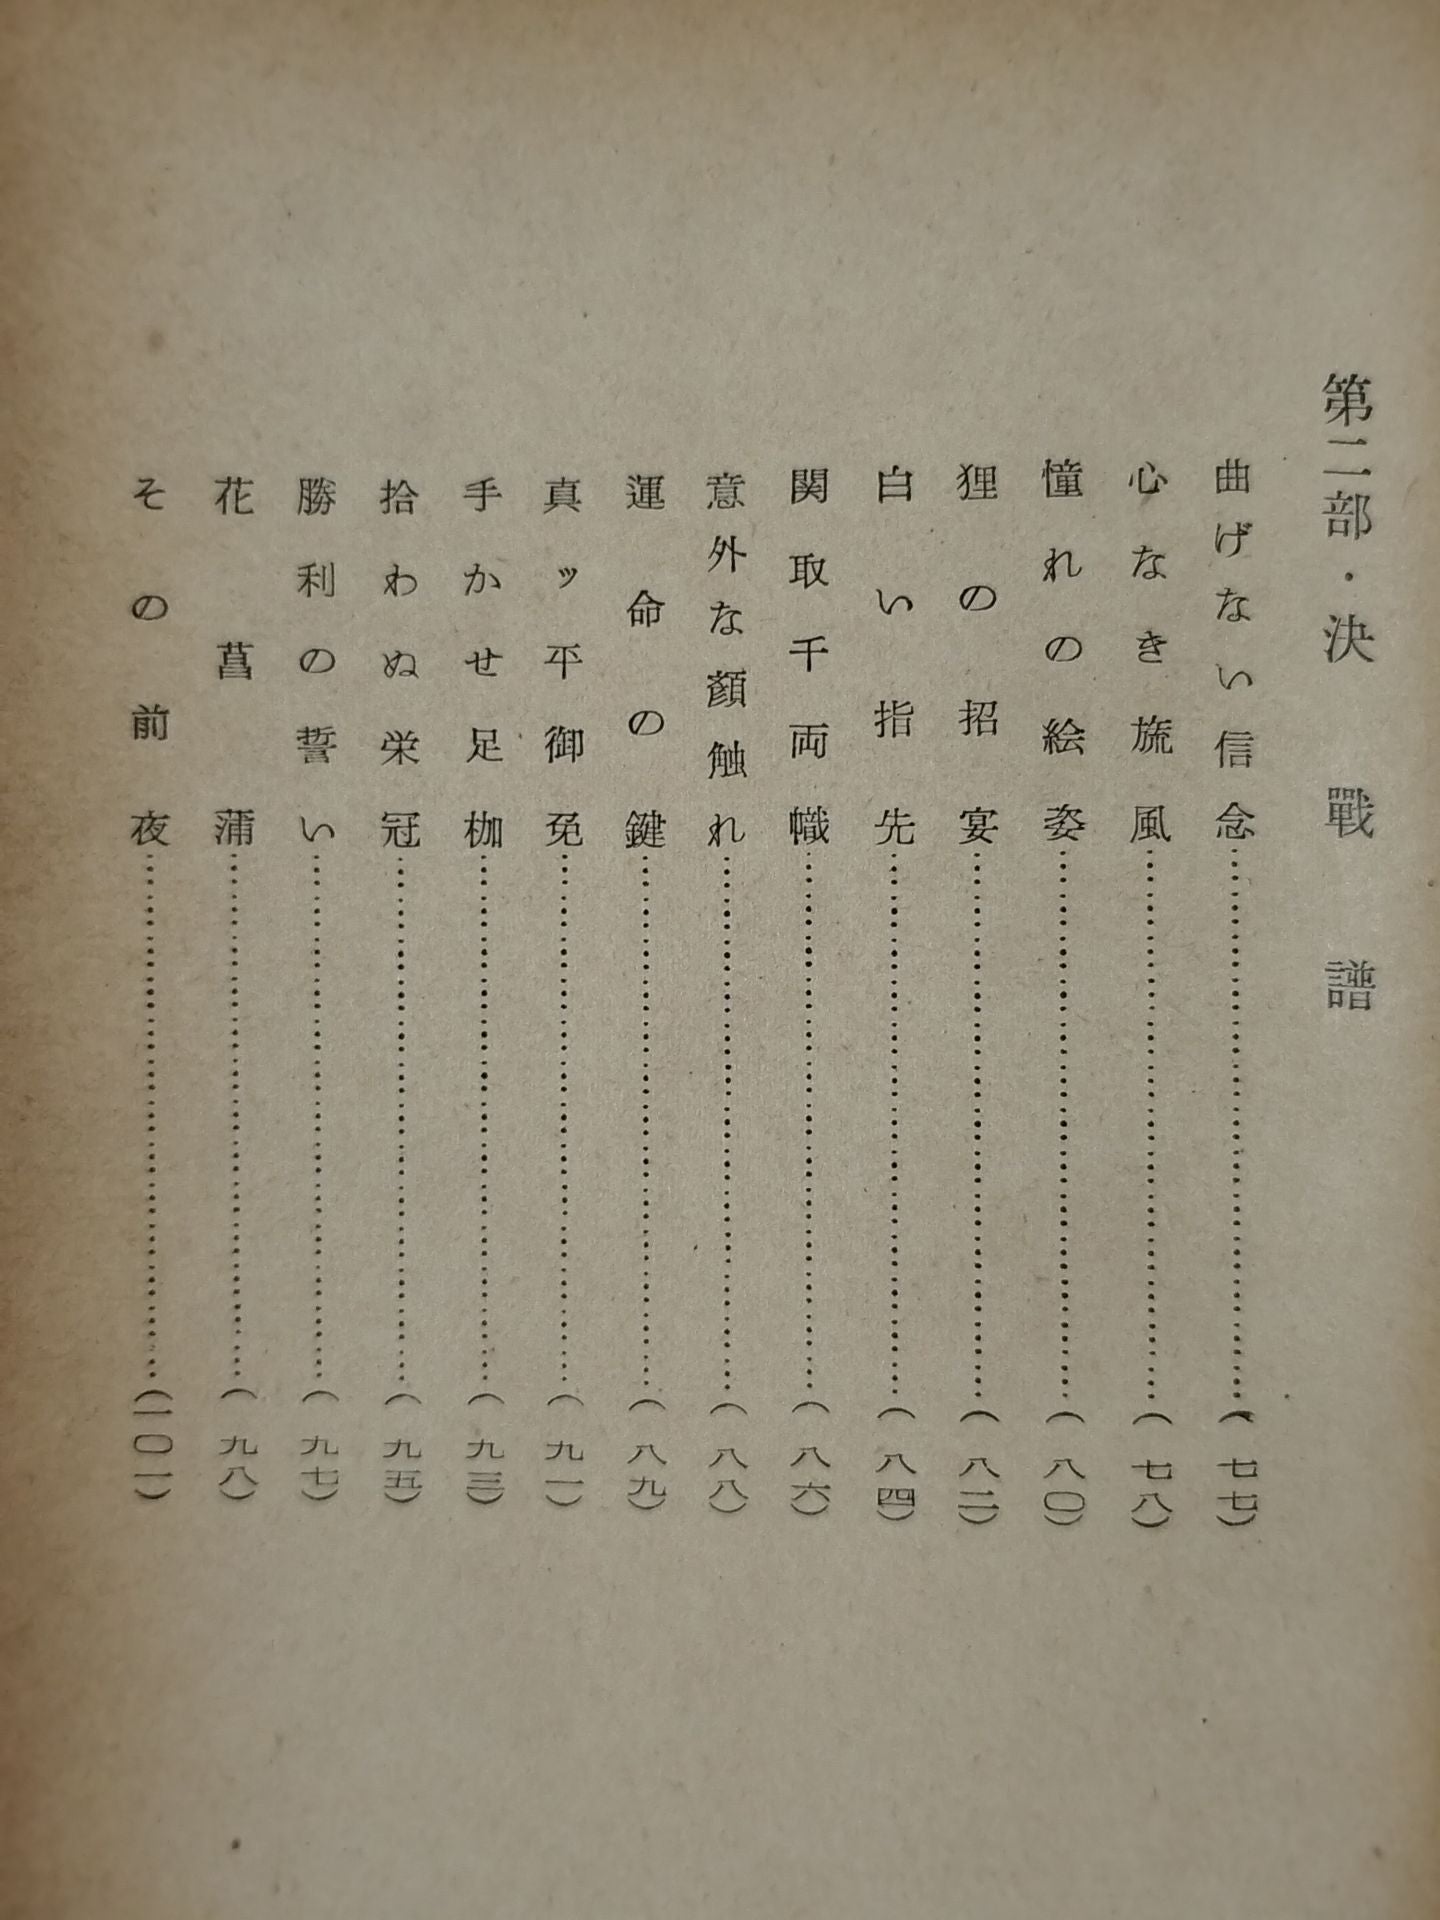 第二部・決戰譜
曲げない信念……………………(七七)
心なき旋風……………………(七八)
憧れの絵姿……………………(八〇)
狸の招宴……………………(八二)
白い指先……………………(八四)
関取千両幟……………………(八六)
意外な顔触れ……………………(八八)
運命の鍵……………………(八九)
真ッ平御免……………………(九一)
手かせ足枷……………………(九三)
拾わぬ栄冠……………………(九五)
勝利の誓い……………………(九七)
花菖蒲……………………(九八)
その前夜……………………(一〇一)